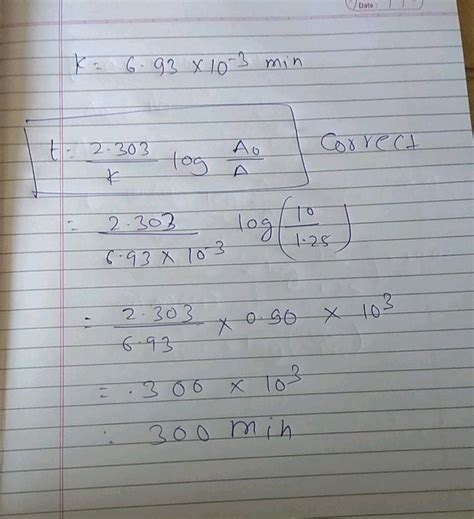 Date :
K = 6.93 × 10⁻³ min
t = 2.303/K log A₀/A Correct
= 2.303/6.93 × 10⁻³ log(10/1.25)
= 2.303/6.93 × 0.90 × 10³
= .300 × 10³
: 300 min